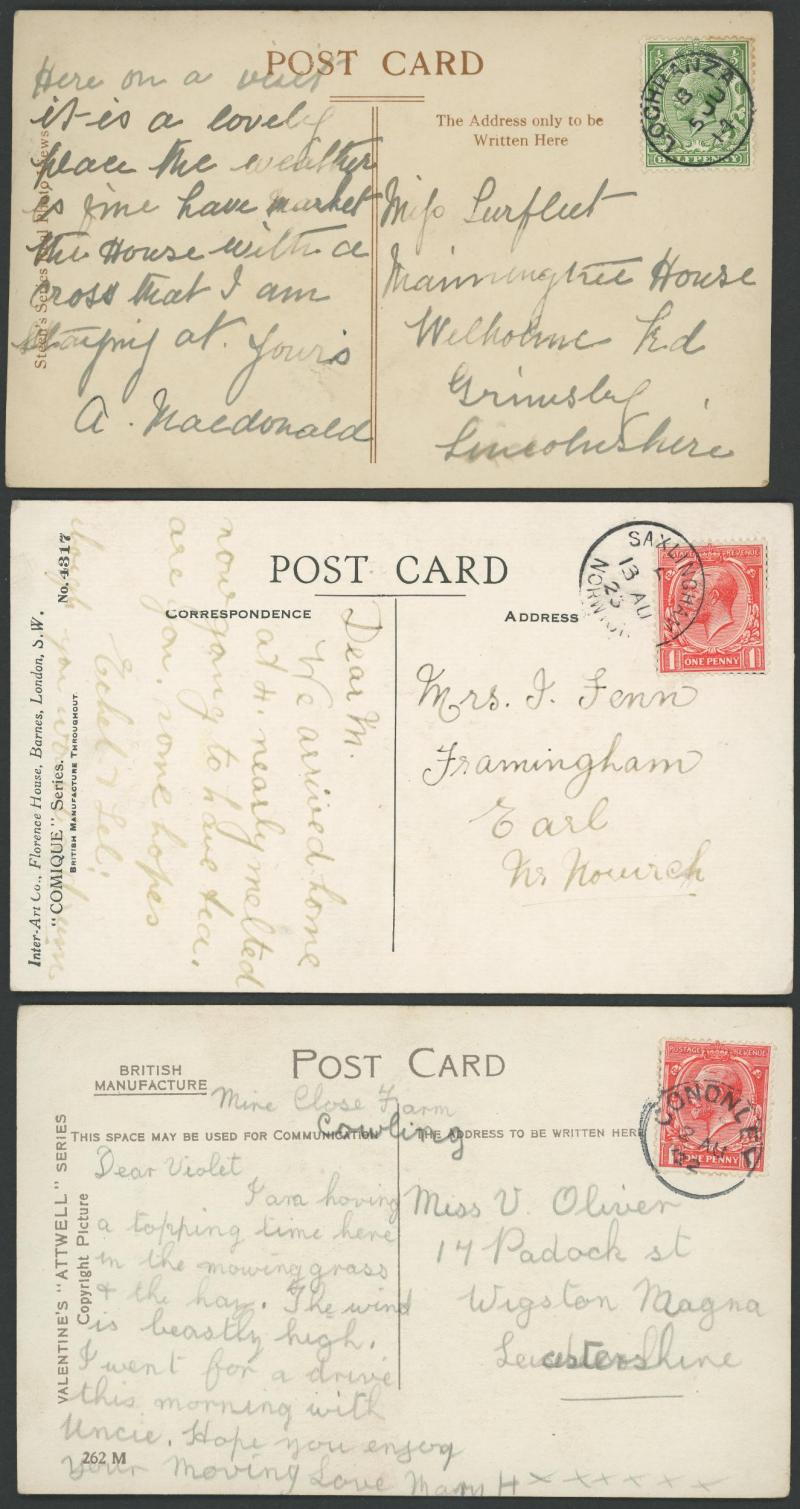 POST CARD
The Address only to be
Written Here
Steen's Series Real Photo Views
Here on a visit
it is a lovely
place the weather
is fine have market
the House with a
cross that I am
staying at. Yours
A. Macdonald
LOCHRANZA
8
5 JU
14
HALFPENNY
Miss Surfleet
Manningtree House
Welholme Rd
Grimsby
Lincolnshire
POST CARD
CORRESPONDENCE
ADDRESS
Inter-Art Co., Florence House, Barnes, London, S.W.
"COMIQUE" Series.
BRITISH MANUFACTURE THROUGHOUT.
No. 4317
Dear M.
We arrived home
at 4. nearly melted
now going to have tea.
are you. some hopes
Ethel & Lel:
you
SAXLINGHAM
13 AU
23
NORWICH
POSTAGE REVENUE
1 ONE PENNY 1
Mrs. J. Fenn
Framingham
Earl
Nr Nowirch
POST CARD
BRITISH
MANUFACTURE
THIS SPACE MAY BE USED FOR COMMUNICATION
THE ADDRESS TO BE WRITTEN HERE
VALENTINE'S "ATTWELL" SERIES
Copyright Picture
262 M
Mire Close Farm
Cowling
Dear Violet
I am having
a topping time here
in the mowing grass
& the hay. The wind
is beastly high.
I went for a drive
this morning with
Uncle. Hope you enjoy
your moving Love Mary H x x x x x x
CONONLEY
2 AU
POSTAGE REVENUE
1 ONE PENNY 1
Miss V. Oliver
17 Padock st
Wigston Magna
Leicestershire